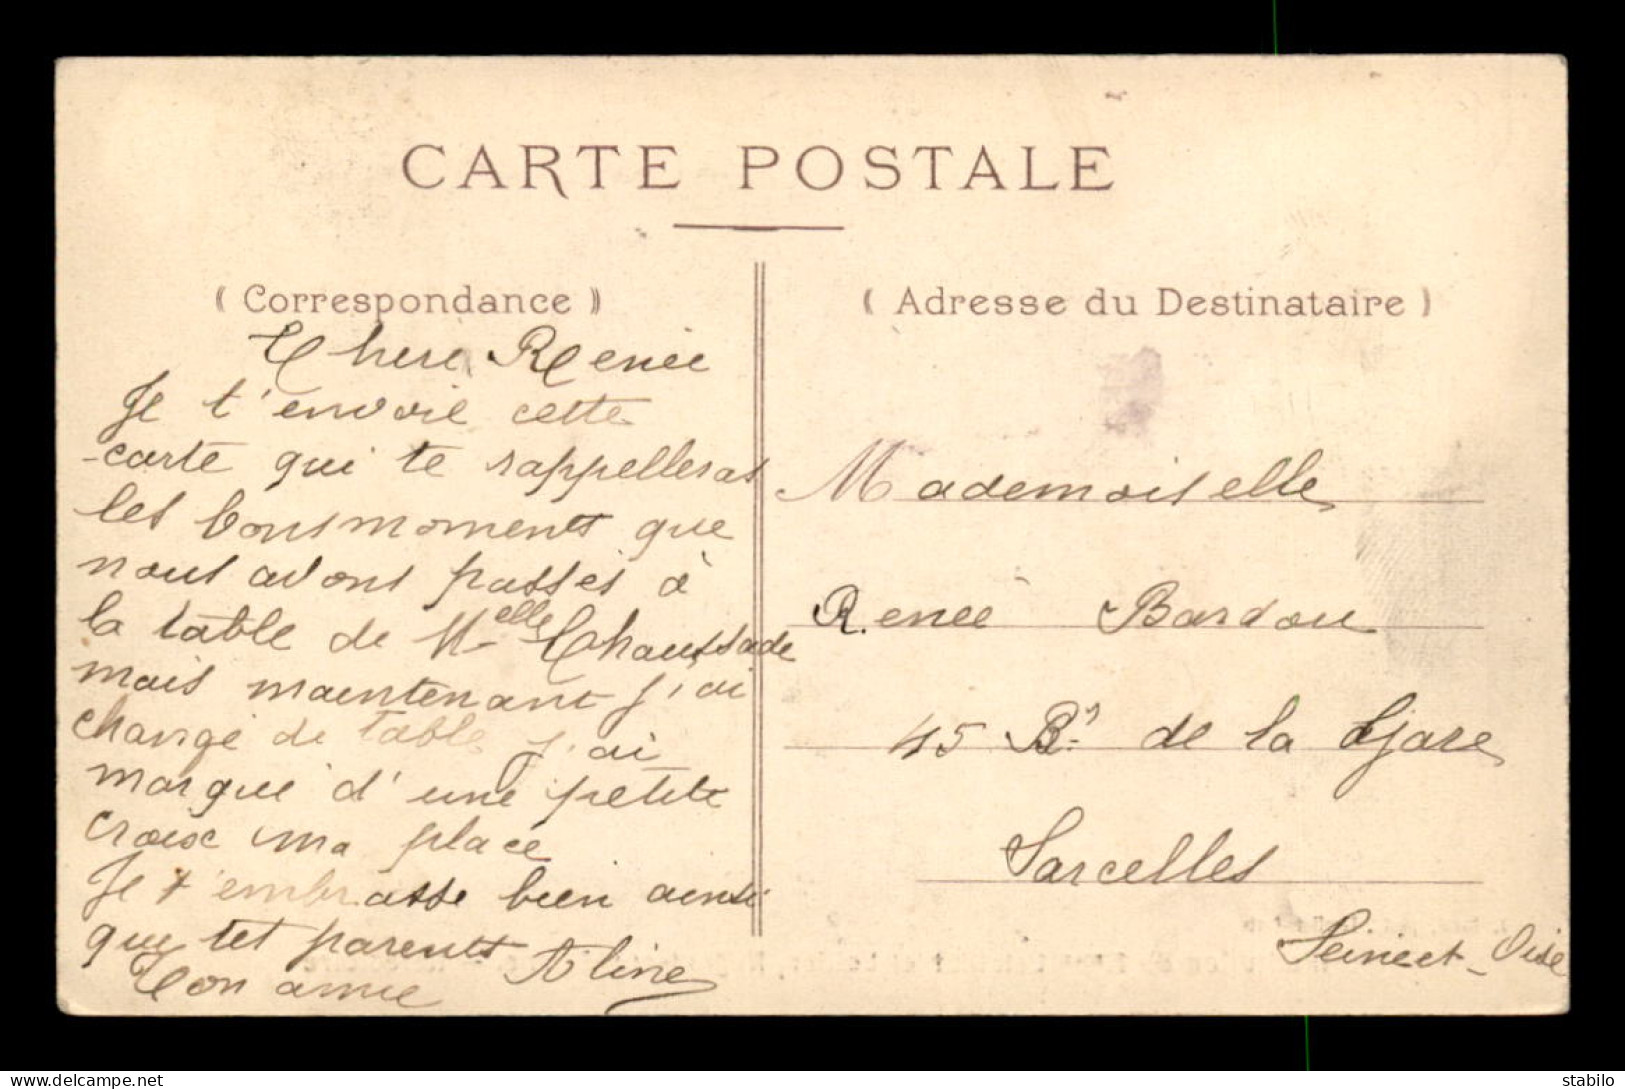 CARTE POSTALE
( Correspondance )
Chère Renée
Je t'envoie cette
carte qui te rappelleras
les bons moments que
nous avons passés à
la table de Melle Chaussade
mais maintenant j'ai
changé de table j'ai
marqué d'une petite
croix ma place
Je t'embrasse bien ainsi
que tes parents
Ton amie Aline
( Adresse du Destinataire )
Mademoiselle
Renée Bardou
45 Bd de la Gare
Sarcelles
Seine et Oise
delcampe.net
stabilo